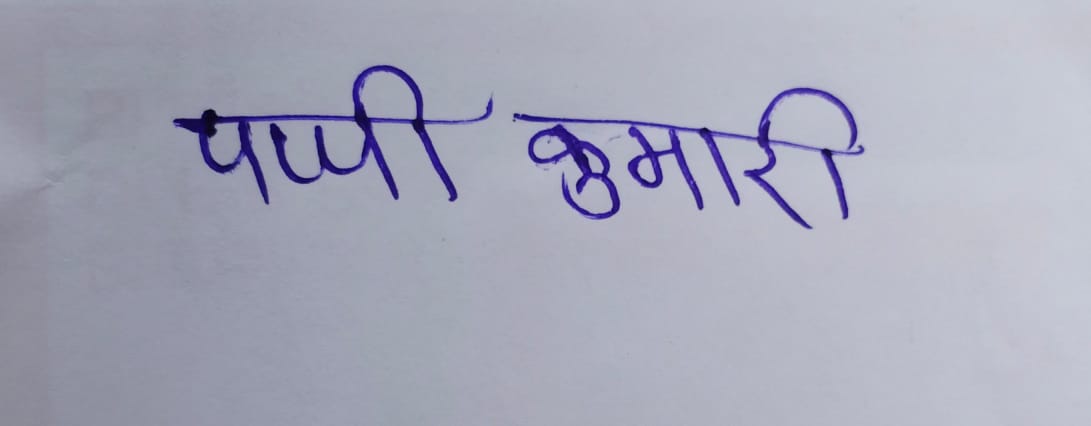 पप्पी कुमारी